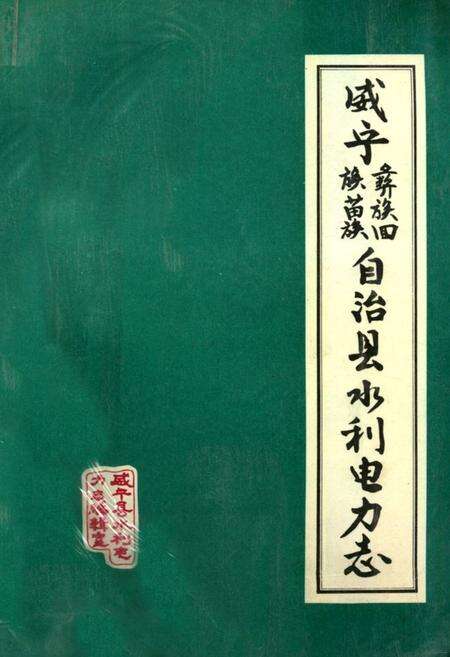 威宁彝族回族苗族自治县水利电力志
威宁县水利电
力志编辑室